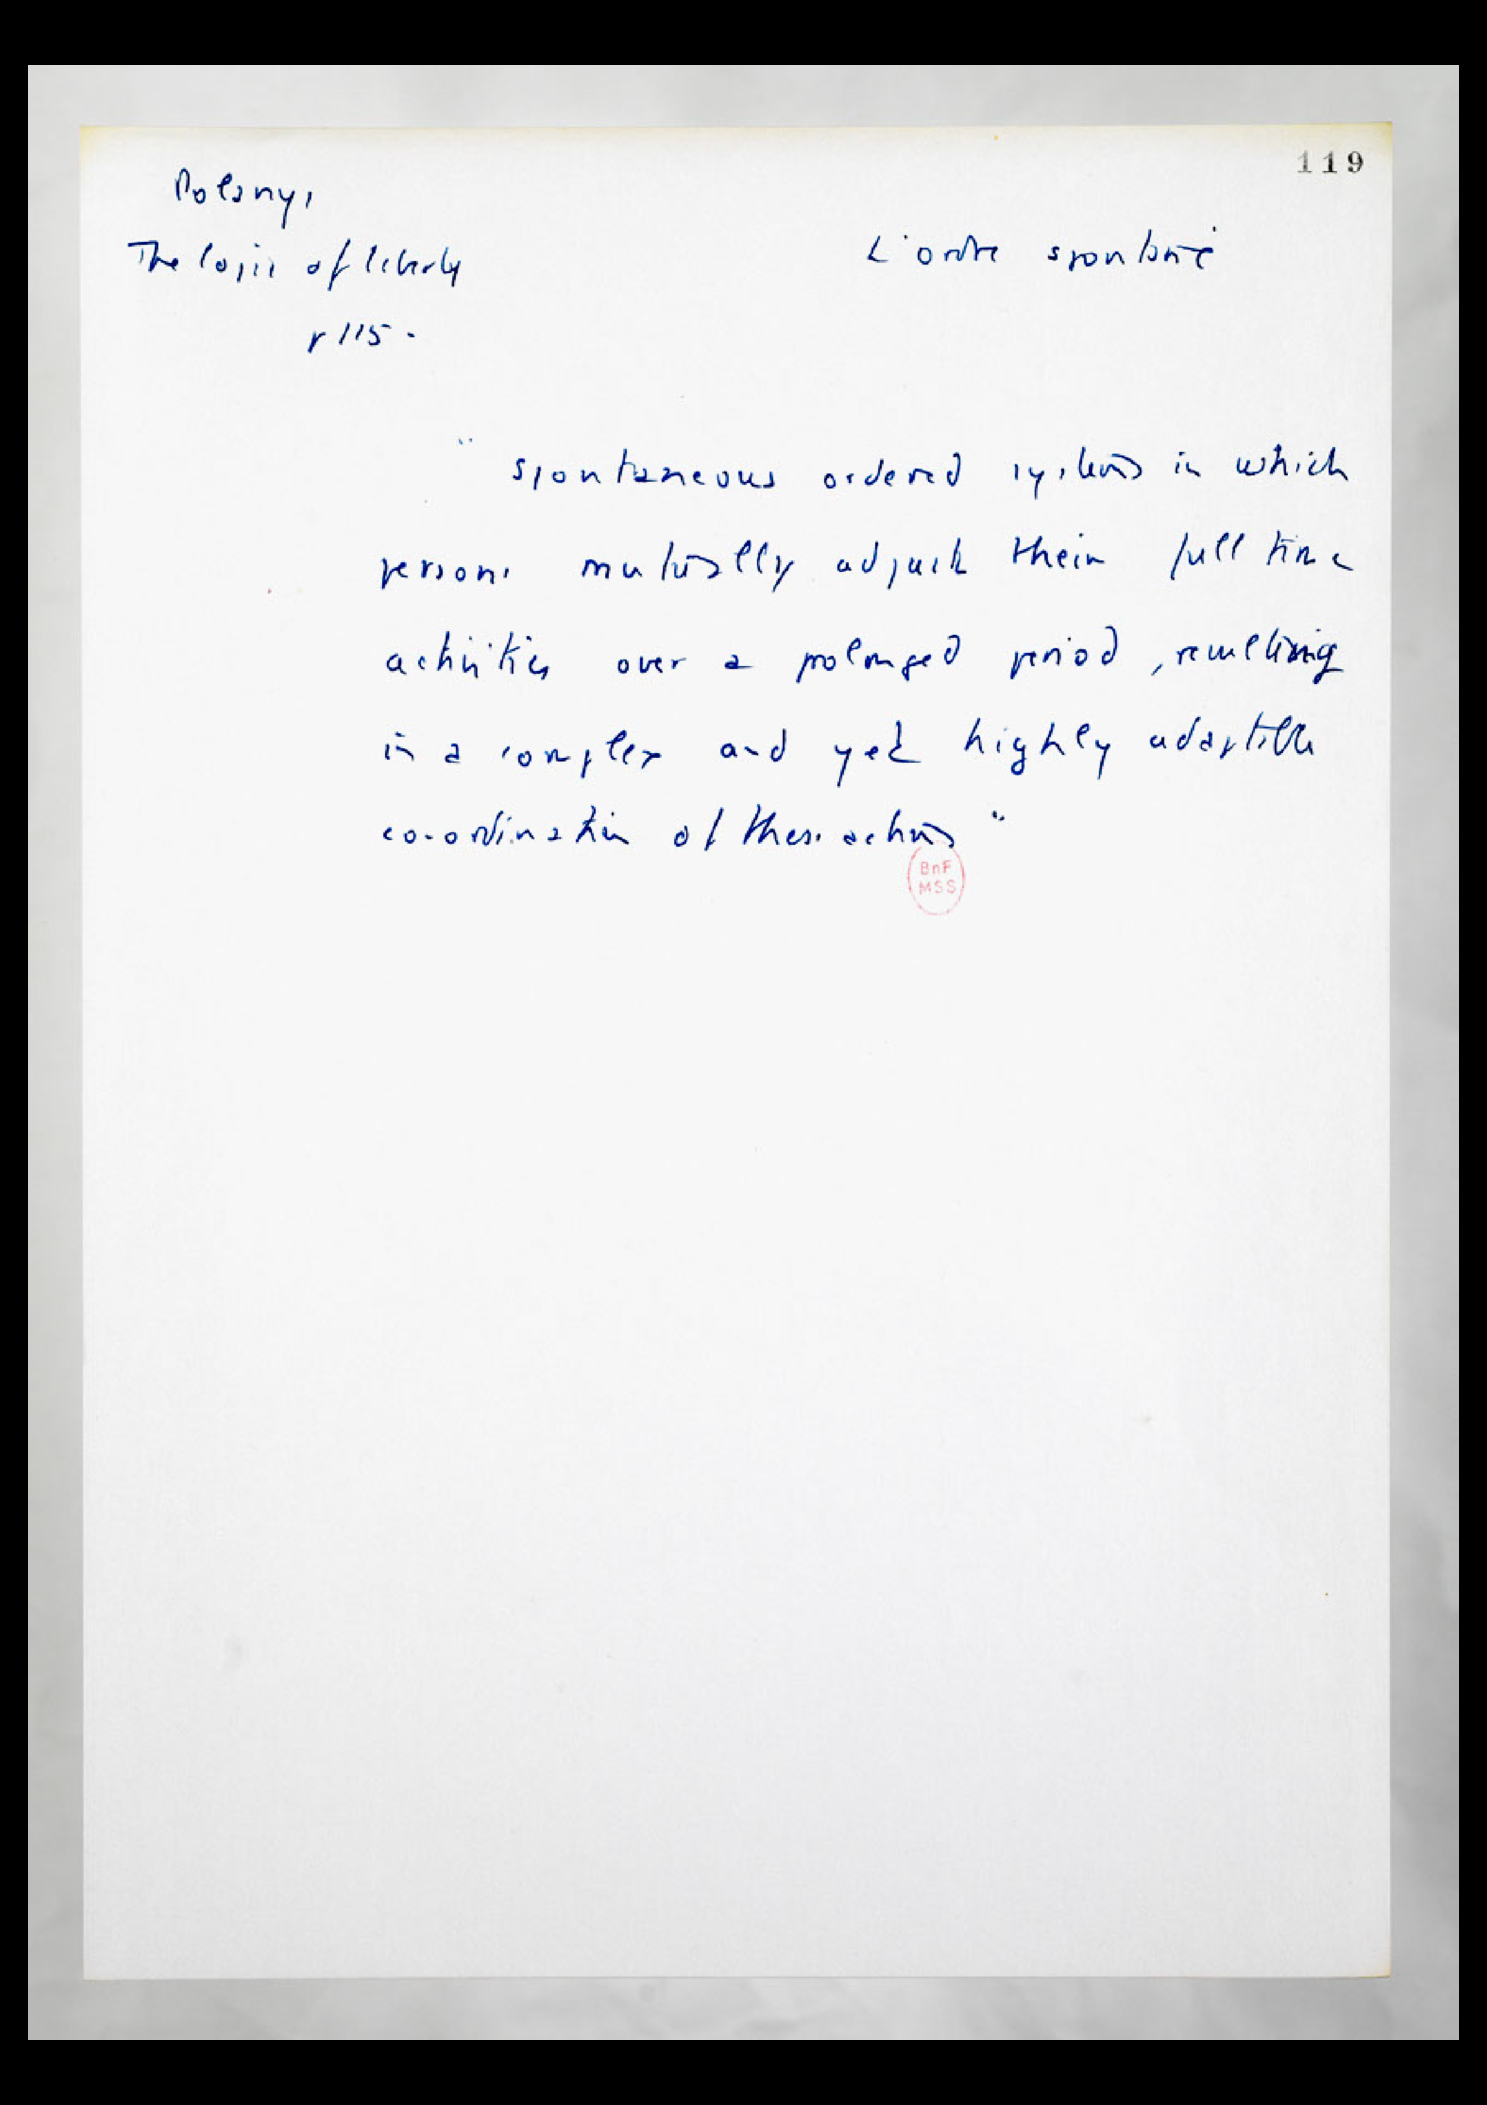 119
Polany,
The logic of liberty
p 115.
L'ordre spontané
" spontaneous ordered systems in which
persons mutually adjust their full time
activities over a prolonged period, resulting
in a complex and yet highly adaptable
co-ordination of these actions "
BnF
MSS